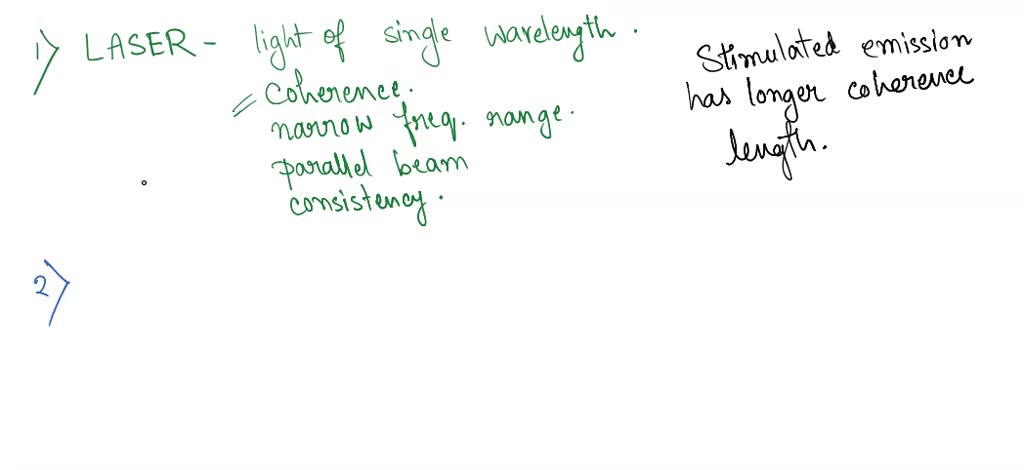 1) LASER - light of single wavelength.
= Coherence.
narrow freq. range.
parallel beam
consistency.
Stimulated emission
has longer coherence
length.
2)